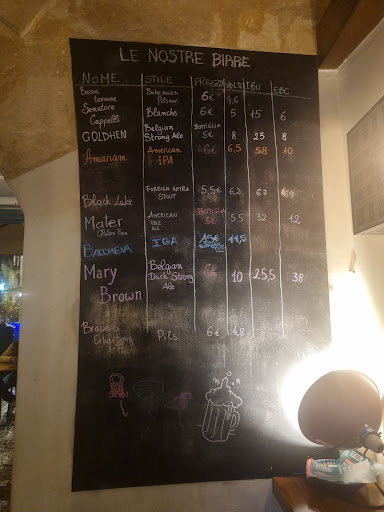 LE NOSTRE BIRRE
NOME STILE PREZZO VOL% IBU EBC
Bassa Bohemian
Pilsner 6€ 4,6
Senatore
Cappelli Blanche 6€ 5 15 6
GOLDHEN Belgian
Strong Ale BOTTIGLIA
5€ 8 25 8
Amariam American
IPA 6€ 6,5 58 10
Black Lake FOREIGN EXTRA
STOUT 5,5€ 6,2 67
Mater
Gluten Free AMERICAN
PALE
ALE BOTTIGLIA
5€ 5,5 32 12
BACCHELIA IGA 15€ 11,5
Mary
Brown Belgian
Dark Strong
Ale 6€ 10 25,5 38
Brauerei
Pils 6€ 4,8